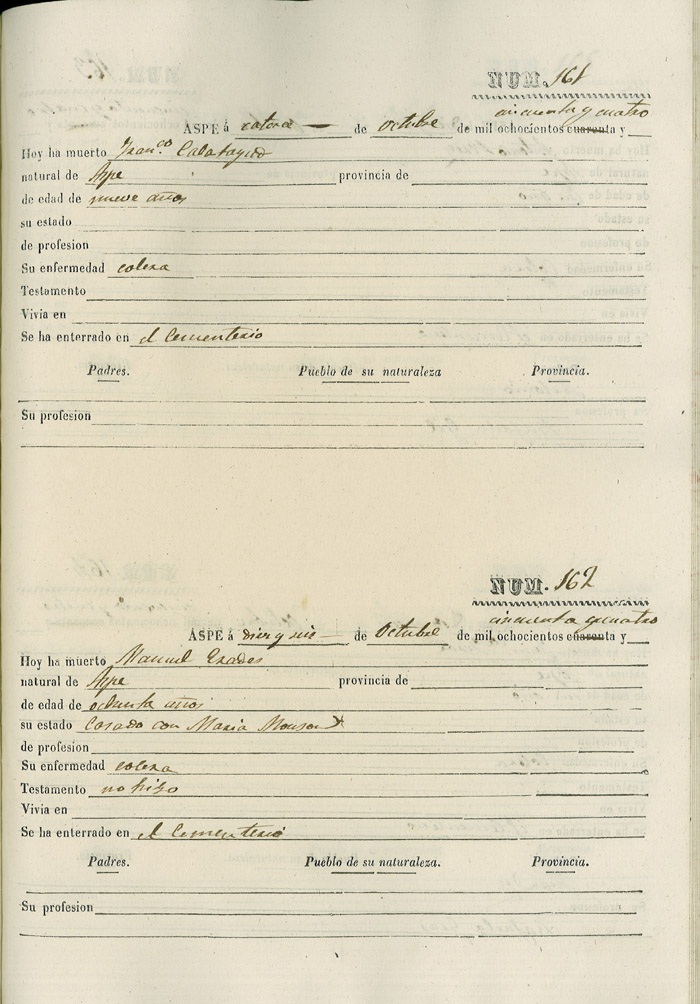 NUM. 161
cincuenta y cuatro
ASPE á catorce de octubre de mil ochocientos cuarenta y
Hoy ha muerto Fran.co Calatayud
natural de Aspe provincia de
de edad de nueve años
su estado
de profesion
Su enfermedad colera
Testamento
Vivia en
Se ha enterrado en el Cementerio
Padres. Pueblo de su naturaleza Provincia.
Su profesion
NUM. 162
cincuenta y cuatro
ASPE á diez y seis de Octubre de mil ochocientos cuarenta y
Hoy ha muerto Manuel Prades
natural de Aspe provincia de
de edad de ochenta años
su estado Casado con Maria
de profesion
Su enfermedad colera
Testamento no hizo
Vivia en
Se ha enterrado en el Cementerio
Padres. Pueblo de su naturaleza. Provincia.
Su profesion